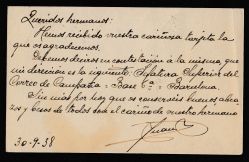 Queridos hermanos:
Hemos recibido vuestra cariñosa tarjeta la
que os agradecemos.
Debemos deciros en contestación a la misma, que
mi dirección es la siguiente: Jefatura Superior del
Correo de Campaña = Base 6ª = Barcelona.
Sin más por hoy que os conserveis buenos abra
zos y besos de todos será el cariño de vuestro hermano
Juan
30-9-38